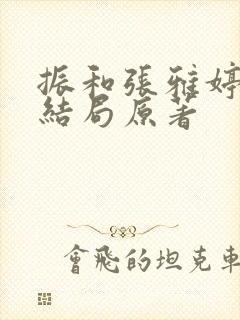 振和張雅婷
結局原著
會飛的坦克車